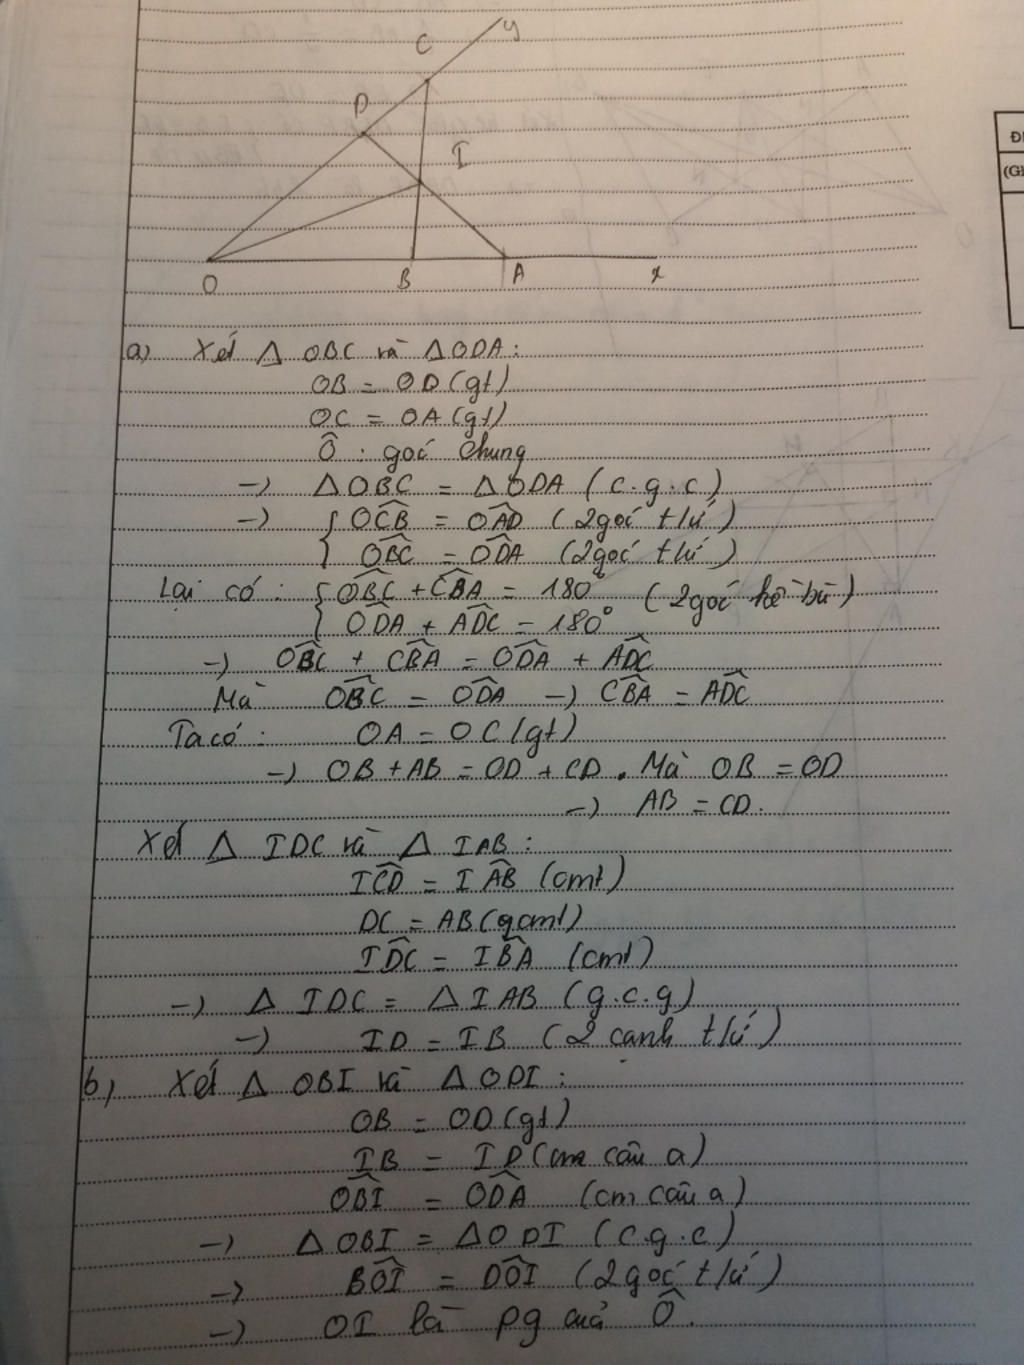 y
C
D
I
O
B
A
x
a) Xét Δ OBC và Δ ODA :
OB = OD (gt)
OC = OA (gt)
Ô : góc chung
→) Δ OBC = Δ ODA ( c.g.c )
→) { OĈB = OÂD ( 2 góc t/ứ )
OB̂C = OD̂A ( 2 góc t/ứ )
Lại có : { OB̂C + CB̂A = 180° ( 2 góc kề bù )
OD̂A + AD̂C = 180°
→) OB̂C + CB̂A = OD̂A + AD̂C
Mà OB̂C = OD̂A →) CB̂A = AD̂C
Ta có : OA = OC (gt)
→) OB + AB = OD + CD . Mà OB = OD
→) AB = CD .
Xét Δ IDC và Δ IAB :
IĈD = IÂB (cmt)
DC = AB ( cmt)
ID̂C = IB̂A (cmt)
→) Δ IDC = Δ IAB ( g.c.g )
→) ID = IB ( 2 cạnh t/ứ )
b) Xét Δ OBI và Δ ODI :
OB = OD (gt)
IB = ID (cm câu a)
OB̂I = OD̂A (cm câu a)
→) Δ OBI = Δ ODI ( c.g.c )
→) BÔI = DÔI ( 2 góc t/ứ )
→) OI là pg của Ô .
(G